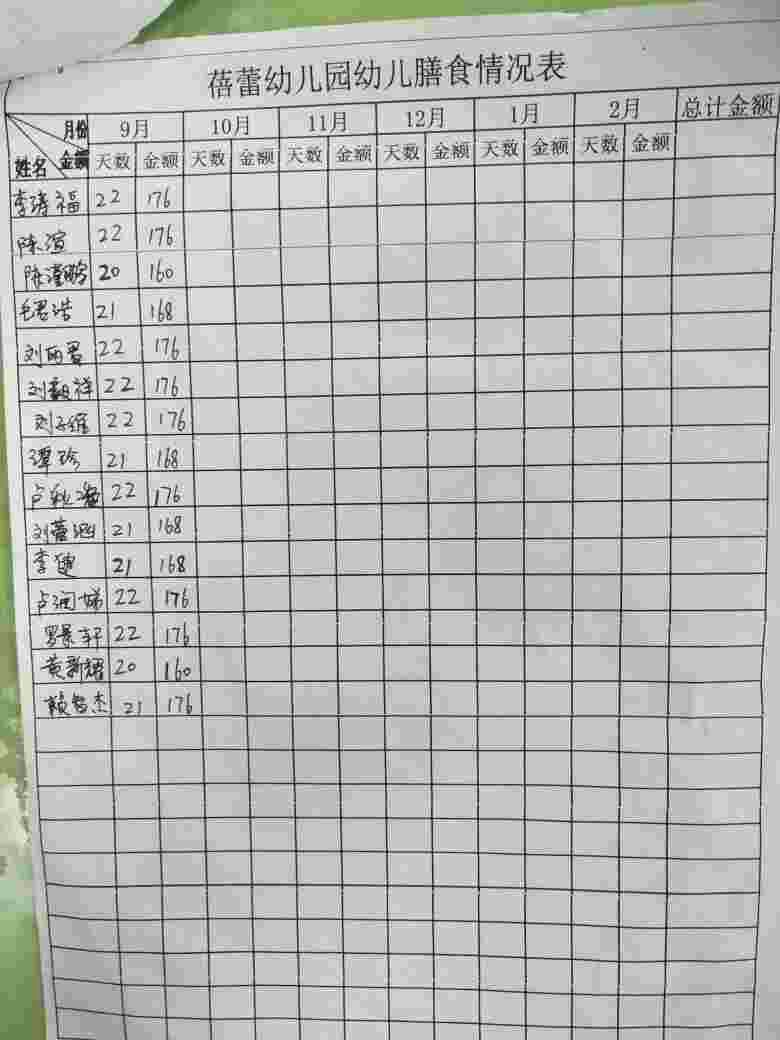 蓓蕾幼儿园幼儿膳食情况表
月份 9月 10月 11月 12月 1月 2月 总计金额
姓名 金额 天数 金额 天数 金额 天数 金额 天数 金额 天数 金额 天数 金额
李涛福 22 176
陈渲 22 176
陈滢鹏 20 160
毛君浩 21 168
刘丽君 22 176
刘毅祥 22 176
刘子维 22 176
谭珍 21 168
卢秋 22 176
刘蕾涵 21 168
李健 21 168
卢润娣 22 176
罗景轩 22 176
黄新耀 20 160
赖智杰 21 176